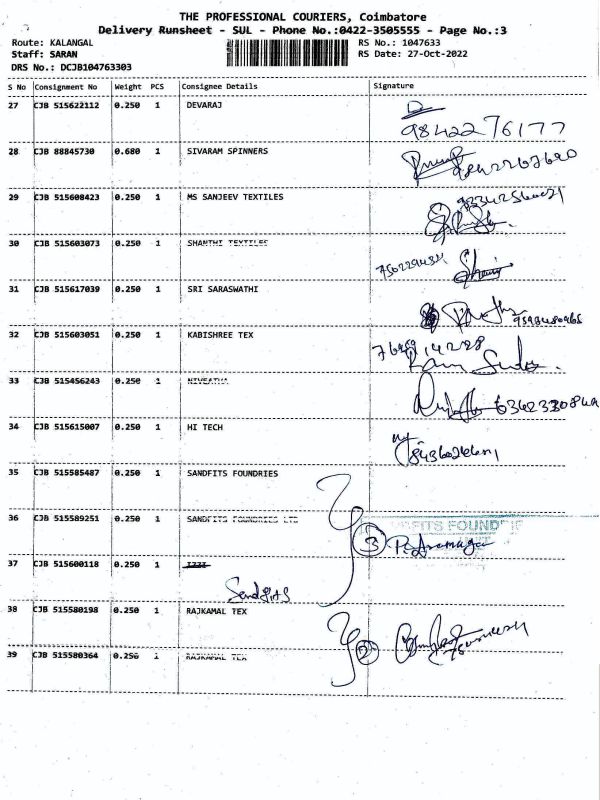 THE PROFESSIONAL COURIERS, Coimbatore
Delivery Runsheet - SUL - Phone No.:0422-3505555 - Page No.:3
Route: KALANGAL RS No.: 1047633
Staff: SARAN RS Date: 27-Oct-2022
DRS No.: DCJB104763303
S No Consignment No Weight PCS Consignee Details Signature
27 CJB 515622112 0.250 1 DEVARAJ
9842276177
28 CJB 88845730 0.680 1 SIVARAM SPINNERS
29 CJB 515608423 0.250 1 MS SANJEEV TEXTILES
30 CJB 515603073 0.250 1 SHANTHI TEXTILES
31 CJB 515617039 0.250 1 SRI SARASWATHI
32 CJB 515603051 0.250 1 KABISHREE TEX
33 CJB 515456243 0.250 1 NIVEATHA
34 CJB 515615007 0.250 1 HI TECH
35 CJB 515585487 0.250 1 SANDFITS FOUNDRIES
36 CJB 515589251 0.250 1 SANDFITS FOUNDRIES LTD
3
37 CJB 515600118 0.250 1
Sandfits
38 CJB 515580198 0.250 1 RAJKAMAL TEX
2
39 CJB 515580364 0.250 1 RAJKAMAL TEX